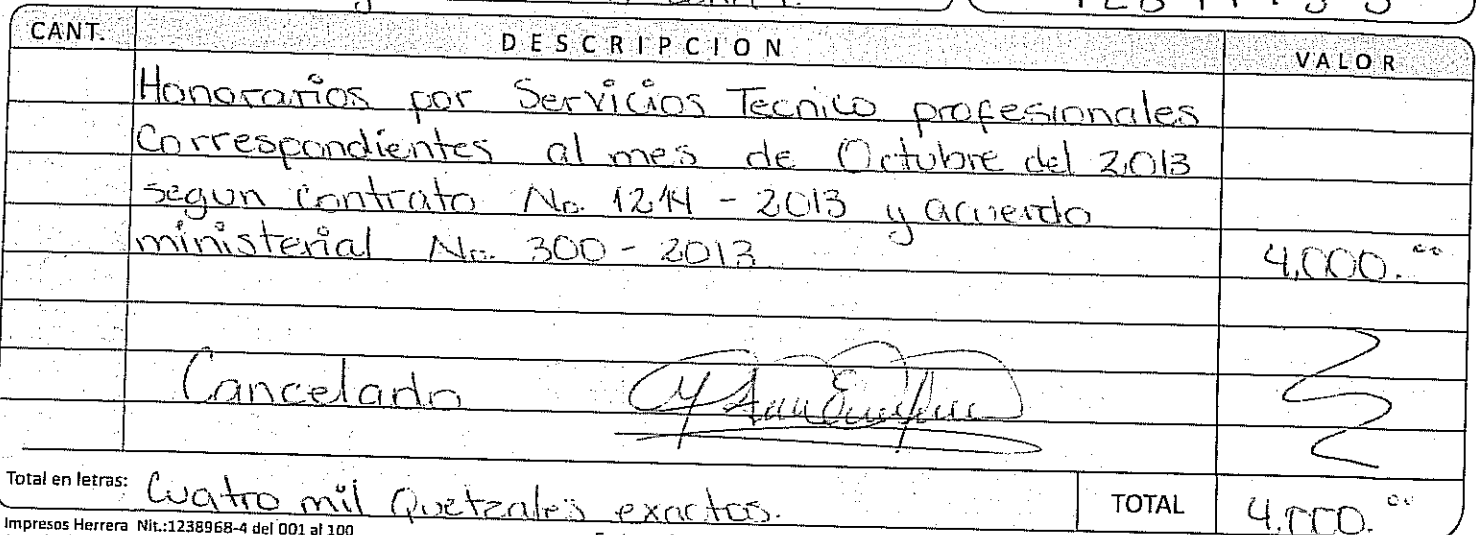 CANT. DESCRIPCION VALOR
Honorarios por Servicios Tecnico profesionales
Correspondientes al mes de Octubre del 2,013
segun Contrato No. 1214 - 2013 y acuerdo
ministerial No. 300 - 2013 4,000.00
Cancelado
Total en letras: Cuatro mil Quetzales exactos. TOTAL 4,000.00
Impresos Herrera Nit.:1238968-4 del 001 al 100